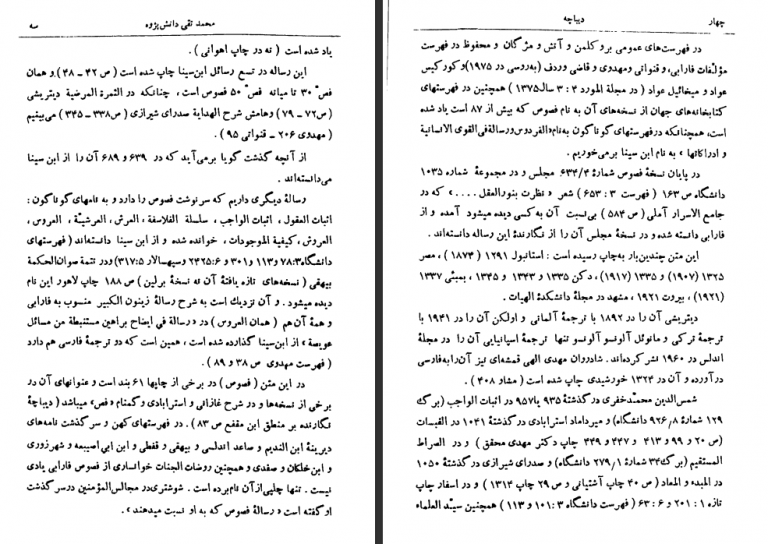 محمد تقی دانش‌پژوه
سه
یاد شده است ( نه در چاپ اهوانی ) .
این رساله در تسع رسائل ابن‌سینا چاپ شده است ( ص ۴۲ ــ ۴۸ ) و همان
فص ۳۰ تا میانه فص ۵۰ فصوص است ، چنانکه در الثمرة المرضیة دیتریشی
( ص۷۲ ــ ۷۹ ) وهامش شرح الهدایة صدرای شیرازی ( ص۳۳۸ ــ ۳۴۵ ) می‌بینیم
( مهدوی ۲۰۶ ــ قنواتی ۹۵ ) .
از آنچه گذشت گویا برمی‌آید که در ۶۳۹ و ۶۸۹ آن را از ابن سینا
می‌دانسته‌اند .
رسالۀ دیگری داریم که سرنوشت فصوص را دارد و به نامهای گوناگون :
اثبات العقول ، اثبات الواجب ، سلسلة الفلاسفة ، العرش ، العرشیّة ، العروس ،
العروش ، کیفیة الموجودات ، خوانده شده و از ابن سینا دانسته‌اند ( فهرستهای
دانشگاه ۷۸:۳ و ۱۱۳ و ۳۰۱ و ۲۳۲۵:۶ وسپهسالار ۳۱۷:۵ ) ودر تتمة صوان‌الحکمة
بیهقی ( نسخه‌های تازه یافتۀ آن نه نسخۀ برلین ) ص ۱۸۸ چاپ لاهور این نام
دیده میشود . و آن نزدیك است به شرح رسالۀ زینون الکبیر منسوب به فارابی
و همۀ آن هم ( همان العروس ) در « رسالة فی ایضاح براهین مستنبطة من مسائل
عویصة » از ابن‌سینا گذارده شده است ، همین است که دو ترجمۀ فارسی هم دارد
( فهرست مهدوی ص ۳۸ و ۸۹ ) .
در این متن ( فصوص ) در برخی از چاپها ۶۱ بند است و عنوانهای آن در
برخی از نسخه‌ها و در شرح غازانی و استرابادی و گمنام « فص » میباشد ( دیباچۀ
نگارنده بر منطق ابن مقفع ص ۸۳ ) . در فهرستهای کهن و سرگذشت نامه‌های
دیرینۀ ابن الندیم و صاعد اندلسی و بیهقی و قفطی و ابن ابی‌اصیبعه و شهرزوری
و ابن‌خلکان و صفدی و همچنین روضات‌الجنات خوانساری از فصوص فارابی یادی
نیست . تنها چلپی‌ازآن نام‌برده است . شوشتری‌در مجالس‌المؤمنین درسرگذشت
او گفته است « رسالۀ فصوص که به او نسبت میدهند » .
دیباچه
چهار
در فهرست‌های عمومی بروکلمن و آتش و مژگان و محفوظ در فهرست
مؤلفات فارابی، و قنواتی ومهدوی و قاضی وردف (به‌روسی در ۱۹۷۵) و کورکیس
عواد و میخائیل عواد ( در مجلة المورد ۴ : ۳ سال ۱۳۷۵ ) همچنین در فهرستهای
کتابخانه‌های جهان از نسخه‌های آن به نام فصوص که بیش از ۸۷ است یاد شده
است، همچنانکه درفهرستهای گوناگون به‌نام «الفردوس ورسالة فی القوی الانسانیة
و ادراکاتها » به نام ابن سینا برمی‌خوریم .
در پایان نسخۀ فصوص شمارۀ ۶۳۴/۴ مجلس و در مجموعۀ شماره ۱۰۳۵
دانشگاه ص ۱۶۳ ( فهرست ۳ : ۶۵۳ ) شعر « نظرت بنورالعقل .... » که در
جامع الاسرار آملی ( ص ۵۸۴ ) بی‌نسبت آن به‌کسی دیده میشود آمده و از
فارابی دانسته شده و در نسخۀ مجلس آن را از نگارندۀ این رساله دانسته‌اند .
این متن چندین‌بار به‌چاپ رسیده است : استانبول ۱۲۹۱ ( ۱۸۷۴ ) ، مصر
۱۳۲۵ (۱۹۰۷) و ۱۳۳۵ (۱۹۱۷) ، دکن ۱۳۳۵ و ۱۳۴۳ و ۱۳۴۵ ، بمبئی ۱۳۳۷
(۱۹۲۱) ، بیروت ۱۹۲۱ ، مشهد در مجلۀ دانشکدۀ الهیات .
دیتریشی آن را در ۱۸۹۲ با ترجمۀ آلمانی و اولکن آن را در ۱۹۴۱ با
ترجمۀ ترکی و مانوئل آلونسو آلونسو تنها ترجمۀ اسپانیایی آن را در مجلۀ
اندلس در ۱۹۶۰ نشر کرده‌اند. شادروان مهدی الهی قمشه‌ای نیز آن‌را به‌فارسی
درآورده و آن در ۱۳۲۴ خورشیدی چاپ شده است ( مشار ۴۰۸ ) .
شمس‌الدین محمدخفری درگذشتۀ ۹۳۵ یا۹۵۷ در اثبات الواجب ( برگ
۱۲۹ ۹۲۶/۸ دانشگاه) و میرداماد استرابادی درگذشتۀ ۱۰۴۱ در القبسات
( ص ۲۰ و ۹۹ و ۴۱۳ و ۴۴۷ و ۴۴۹ چاپ دکتر مهدی محقق ) و در الصراط
المستقیم ( برگ ۳۴ شمارۀ ۲۷۹/۱ دانشگاه) و صدرای شیرازی درگذشتۀ ۱۰۵۰
در المبدء و المعاد ( ص ۴۰ چاپ آشتیانی و ص ۲۹ چاپ ۱۳۱۴ ) و در اسفار چاپ
تازه ۱ : ۲۰۱ و ۶ : ۶۳ ( فهرست دانشگاه ۳ : ۱۰۱ و ۱۱۳ ) همچنین سیدالعلماء